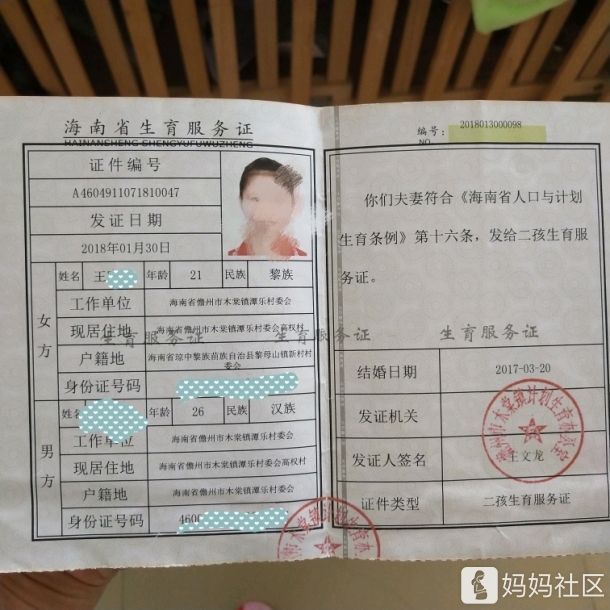 海南省生育服务证
HAINANSHENG SHENGYUFUWUZHENG
证件编号
A4604911071810047
发证日期
2018年01月30日
女方
姓名 王 年龄 21 民族 黎族
工作单位 海南省儋州市木棠镇潭乐村委会
现居住地 海南省儋州市木棠镇潭乐村委会高权村
户籍地 海南省琼中黎族苗族自治县黎母山镇新村村委会
身份证号码
男方
姓名 年龄 26 民族 汉族
工作单位 海南省儋州市木棠镇潭乐村委会
现居住地 海南省儋州市木棠镇潭乐村委会高权村
户籍地 海南省儋州市木棠镇潭乐村委会
身份证号码 460
生育服务证 生育服务证 生育服务证
编号: 2018013000098
NO
你们夫妻符合《海南省人口与计划
生育条例》第十六条,发给二孩生育服
务证。
结婚日期 2017-03-20
发证机关
发证人签名 王文龙
证件类型 二孩生育服务证
儋州市木棠镇计划生育办公室
妈妈社区